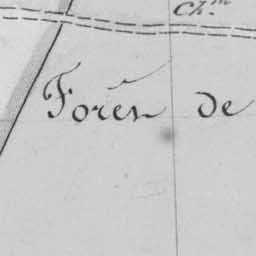 Ch.ⁿ
Forên de